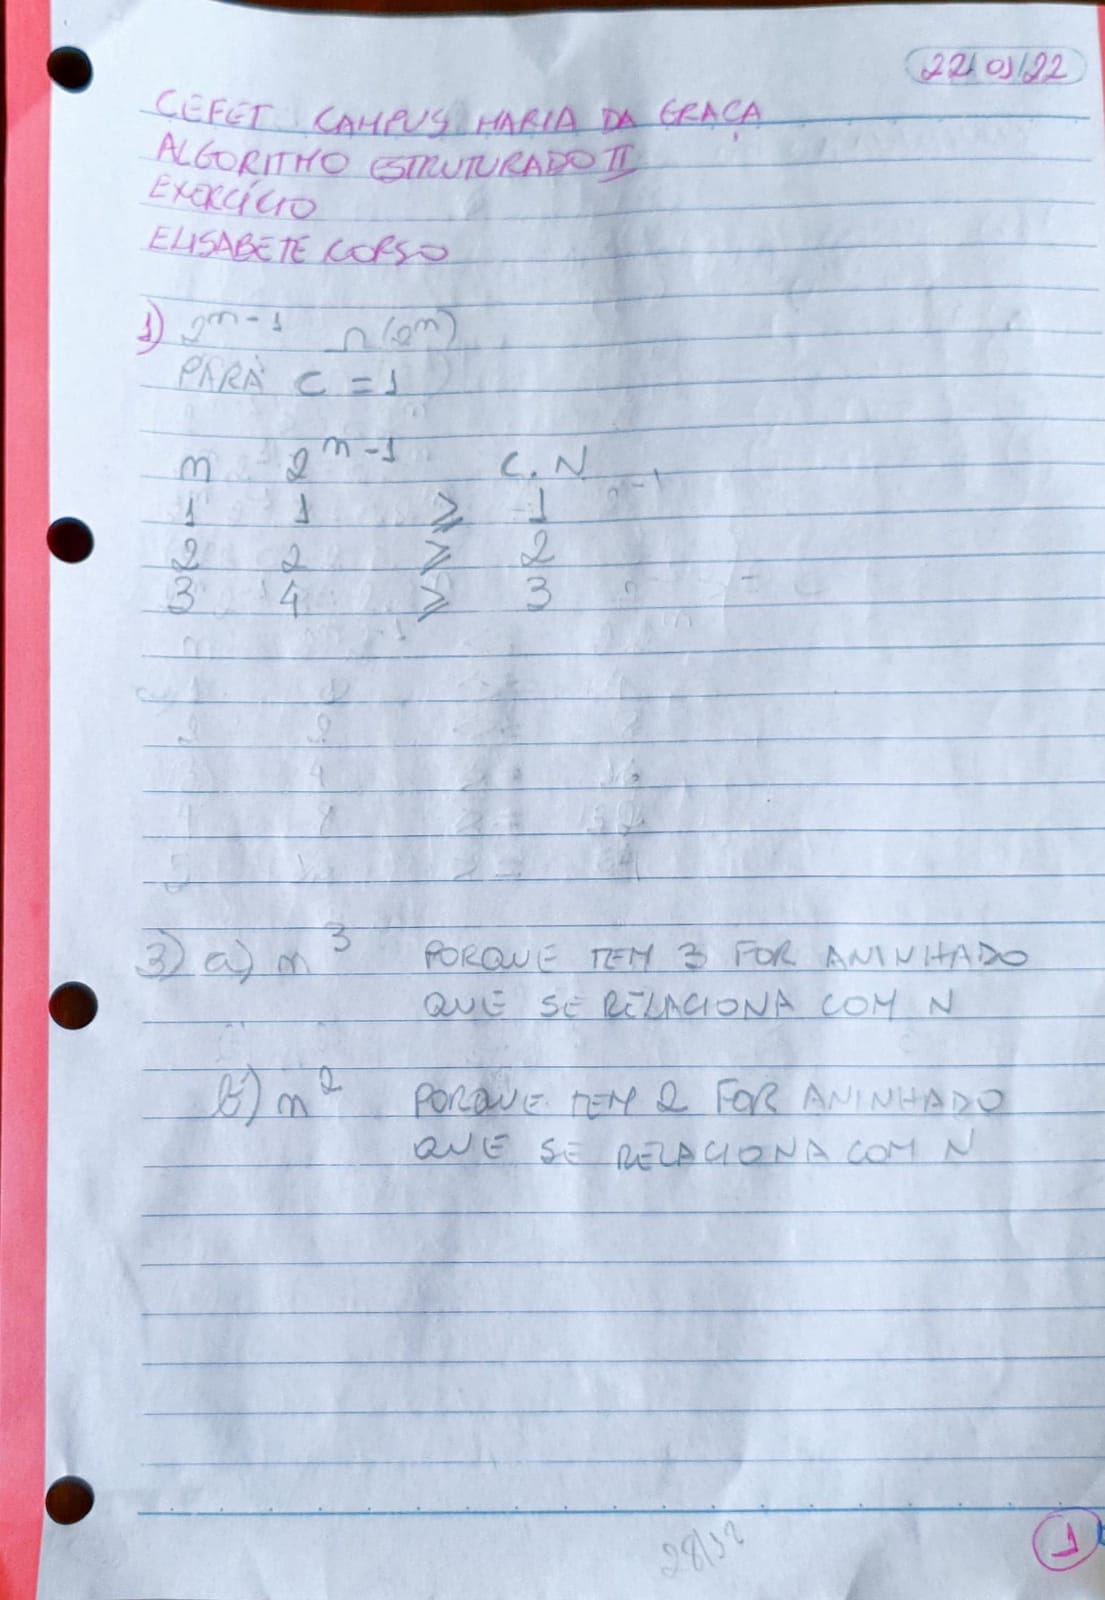 22/01/22
CEFET CAMPUS MARIA DA GRAÇA
ALGORITMO ESTRUTURADO II
EXERCÍCIO
ELISABETE CORSO
1) 2^n-1 Ω(2^n)
PARA C = 1
n 2^n-1 C.N
1 1 ≥ 1
2 2 ≥ 2
3 4 ≥ 3
3) a) n^3 PORQUE TEM 3 FOR ANINHADO
QUE SE RELACIONA COM N
b) n^2 PORQUE TEM 2 FOR ANINHADO
QUE SE RELACIONA COM N
1